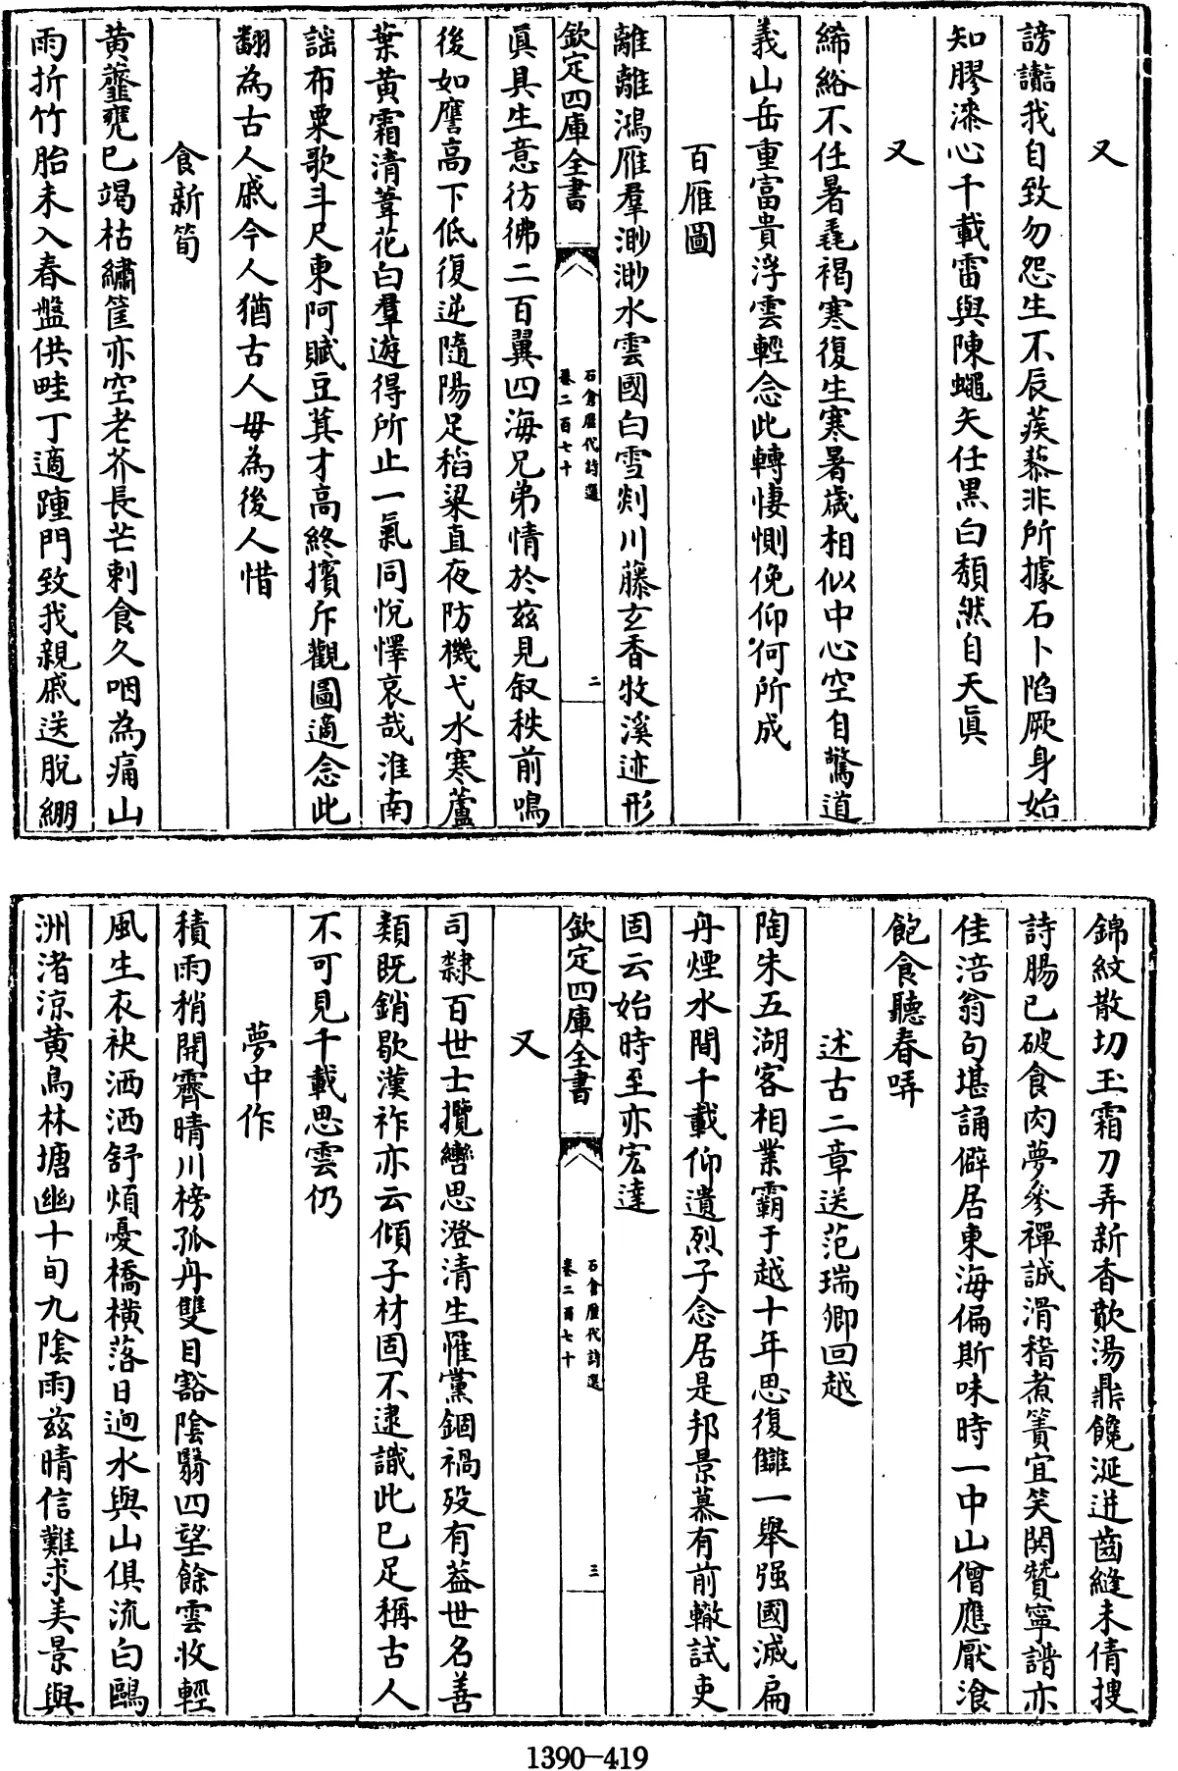 又
謗讟我自致勿怨生不辰蒺藜非所據石卜陷厥身始
知膠漆心千載雷與陳蠅矢任黑白頹然自天眞
又
絺綌不任暑毳褐寒復生寒暑歲相似中心空自驚道
義山岳重富貴浮雲輕念此轉悽惻俛仰何所成
百雁圖
離離鴻雁羣渺渺水雲國白雪剡川藤玄香牧溪迹形
欽定四庫全書
石倉歷代詩選
卷二百七十
二
眞具生意彷彿二百翼四海兄弟情於兹見叙秩前鳴
後如譍高下低復逆隨陽足稻粱直夜防機弋水寒蘆
葉黄霜清葦花白羣遊得所止一氣同悅懌哀哉淮南
謡布粟歌斗尺東阿賦豆萁才高終擯斥觀圖適念此
翻為古人戚今人猶古人毋為後人惜
食新筍
黄虀甕已竭枯鱐筐亦空老芥長芒刺食久咽為痛山
雨折竹胎未入春盤供畦丁適踵門致我親戚送脱綳
錦紋散切玉霜刀弄新香歕湯鼎饞涎迸齒縫未倩搜
詩腸已破食肉夢參禪誠滑稽煮簀宜笑閧贊寧譜亦
佳涪翁句堪誦僻居東海偏斯味時一中山僧應厭飡
飽食聽春哢
述古二章送范瑞卿回越
陶朱五湖客相業霸于越十年思復讎一舉强國滅扁
丹煙水間千載仰遺烈子念居是邦景慕有前轍試吏
固云始時至亦宏達
欽定四庫全書
石倉歷代詩選
卷二百七十
三
又
司隸百世士攬轡思澄清生罹黨錮禍殁有葢世名善
類既銷歇漢祚亦云傾子材固不逮識此已足稱古人
不可見千載思雲仍
夢中作
積雨稍開霽晴川榜孤舟雙目豁陰翳四望餘雲收輕
風生衣袂洒洒舒煩憂橋横落日逈水與山俱流白鷗
洲渚涼黄鳥林塘幽十旬九陰雨兹晴信難求美景與
1390-419